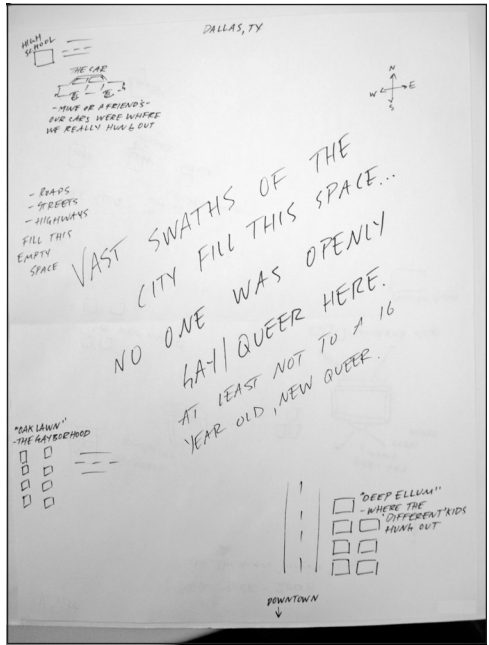 DALLAS, TX
HIGH
SCHOOL
THE CAR
- MINE OR A FRIENDS -
OUR CARS WERE WHERE
WE REALLY HUNG OUT
N
W E
S
- ROADS
- STREETS
- HIGHWAYS
FILL THIS
EMPTY
SPACE
VAST SWATHS OF THE
CITY FILL THIS SPACE...
NO ONE WAS OPENLY
GAY/QUEER HERE.
AT LEAST NOT TO A 16
YEAR OLD, NEW QUEER.
"OAK LAWN"
- THE GAYBORHOOD
"DEEP ELLUM"
- WHERE THE
'DIFFERENT' KIDS
HUNG OUT
DOWNTOWN